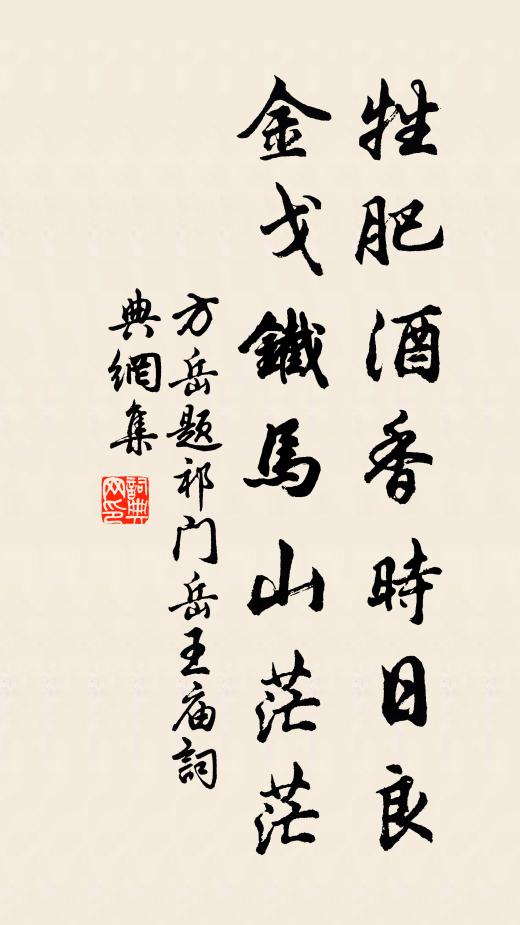 牲肥酒香時日良
金戈鐵馬山茫茫
方岳題祁门岳王庙詞
典網集
詞典
网印